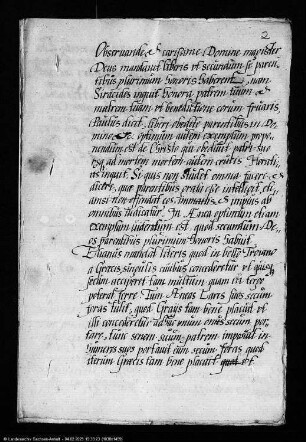 2
Observande et carissime Domine magister
Deus mandauit liberis ut secundum se paren
tibus plurimum honoris haberent, nam
Siracides inquit honora patrem tuum et
matrem tuam ut benedictione eorum fruaris
Paulus dicit liberi obedite parentibus in Do
mino optimum autem exemplum propo
nendum est de Christo qui obediuit patri suo
usq ad mortem mortem autem crucis
inquit. Si quis non studet omnia facere et
dicere, quae parentibus grata esse intelligit, et
ansi non offendat eos, immanis et impius ab
omnibus iudicatur. In Aenea optimum etiam
exemplum videndum est, quod secundum De
os parentibus plurimum honoris habuit
Aelianus quod in bello Troiano
a Graecis singulis ciuibus concederetur ut quisq
secum acciperet tam multum quam in tergo
poterat ferre Tum Aeneas Laris suos secum
foras tulit, quod Grayis tam bene placuit ut
illi concederetur adhuc unum onus secum por
tare, tunc senem suum patrem imposuit in
humeros suos portauit eum secum foras quod
iterum Graecis tam bene placuit